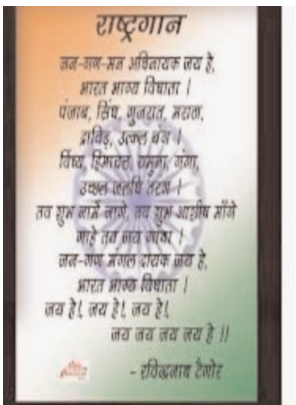 राष्ट्रगान
जन-गण-मन अधिनायक जय हे,
भारत भाग्य विधाता ।
पंजाब, सिंध, गुजरात, मराठा,
द्राविड़, उत्कल बंग ।
विंध्य, हिमाचल, यमुना, गंगा,
उच्छल जलधि तरंग ।
तव शुभ नामे जागे, तव शुभ आशीष माँगे
गाहे तव जय गाथा ।
जन-गण मंगल दायक जय हे,
भारत भाग्य विधाता ।
जय हे!, जय हे!, जय हे!,
जय जय जय जय हे !!
- रविन्द्रनाथ टैगोर